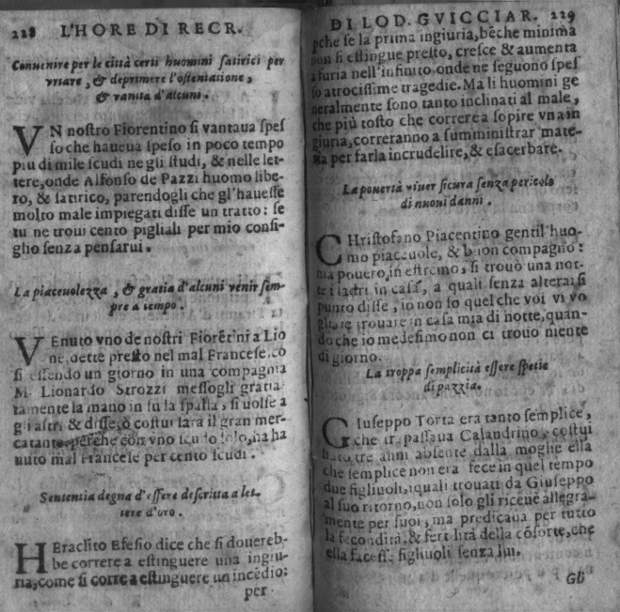 228 L'HORE DI RECR.
Conuenire per le città certi huomini satirici per
vrtare, & deprimere l'ostentatione,
& vanità d'alcuni.
VN nostro Fiorentino si vantaua spes
so che haueua speso in poco tempo
piu di mile scudi ne gli studi, & nelle let-
tere, onde Alfonso de Pazzi huomo libe-
ro, & satirico, parendogli che gl'hauesse
molto male impiegati disse un tratto: se
tu ne troui cento pigliali per mio consi-
glio senza pensarui.
La piaceuolezza, & gratia d'alcuni venir sem-
pre a tempo.
VEnuto vno de nostri Fiorentini a Lio
ne, dette presto nel mal Francese, cō
si essendo un giorno in una compagnia
M. Lionardo Strozzi messogli gratia-
tamente la mano in su la spalla, si uolse a
gli altri & disse, ò costui sarà il gran mer-
catante perche con vno scudo solo, ha ha
uuto mal Francese per cento scudi.
Sententia degna d'essere descritta a let-
tere d'oro.
HEraclito Efesio dice che si douereb-
be correre a estinguere una ingiu-
ria, come si corre a estinguere un incēdio:
per
DI LOD. GVICCIAR. 229
pche se la prima ingiuria, bēche minima
non si estingue presto, cresce & aumenta
a furia nell'infinito, onde ne seguono spes
so atrocissime tragedie. Ma li huomini ge
neralmente sono tanto inclinati al male,
che più tosto che correre a sopire vna in
giuria, correranno a sumministrar mate-
ria per farla incrudelire, & esacerbare.
La pouertà viuer sicura senza pericolo
di nuoui danni.
CHristofano Piacentino gentil'huo-
mo piaceuole, & buon compagno:
ma pouero, in estremo, si trouò una not-
te i ladri in casa, a quali senza alterarsi
punto disse, io non so quel che voi vi vo
gliate trouare in casa mia di notte, quan-
do che io medesimo non ci trouo niente
di giorno.
La troppa semplicità essere spetie
di pazzia.
GIuseppo Torta era tanto semplice,
che trapassaua Calandrino, costui
stato tre anni absente dalla moglie ella
che semplice non era fece in quel tempo
due figliuoli, i quali trouati da Giuseppo
al suo ritorno, non solo gli riceuè allegra-
mente per suoi, ma predicaua per tutto
la fecondità, & fertilità della cōsorte, che
ella facesse figliuoli senza lui.
GB